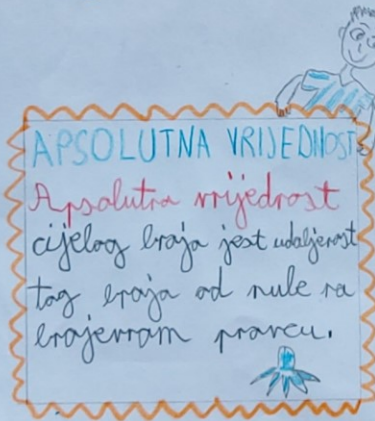 APSOLUTNA VRIJEDNOST
Apsolutna vrijednost
cijelog broja jest udaljenost
tog broja od nule na
brojevnom pravcu.